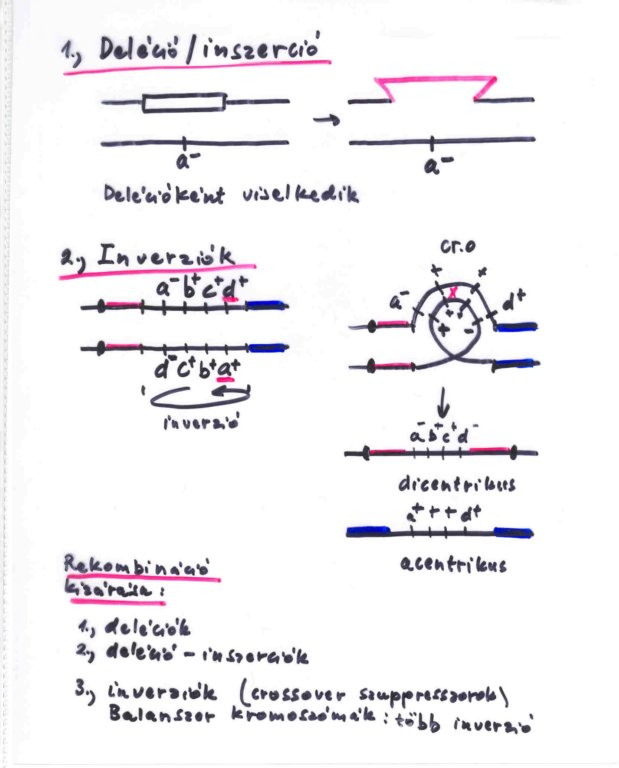 1., Deléció/inszerció
a⁻
a⁻
Delécióként viselkedik
2., Inverziók
a⁻ b⁺ c⁺ d⁺
d⁻ c⁺ b⁺ a⁺
inverzió
cr.o
a⁻ + x + d⁺
+ + + -
a⁻ b⁺ c⁺ d⁻
dicentrikus
a⁺ + + d⁺
acentrikus
Rekombináció
kizárása:
1., deléciók
2., deléció - inszerciók
3., inverziók (crossover szuppresszorok)
Balanszer kromoszómák: több inverzió